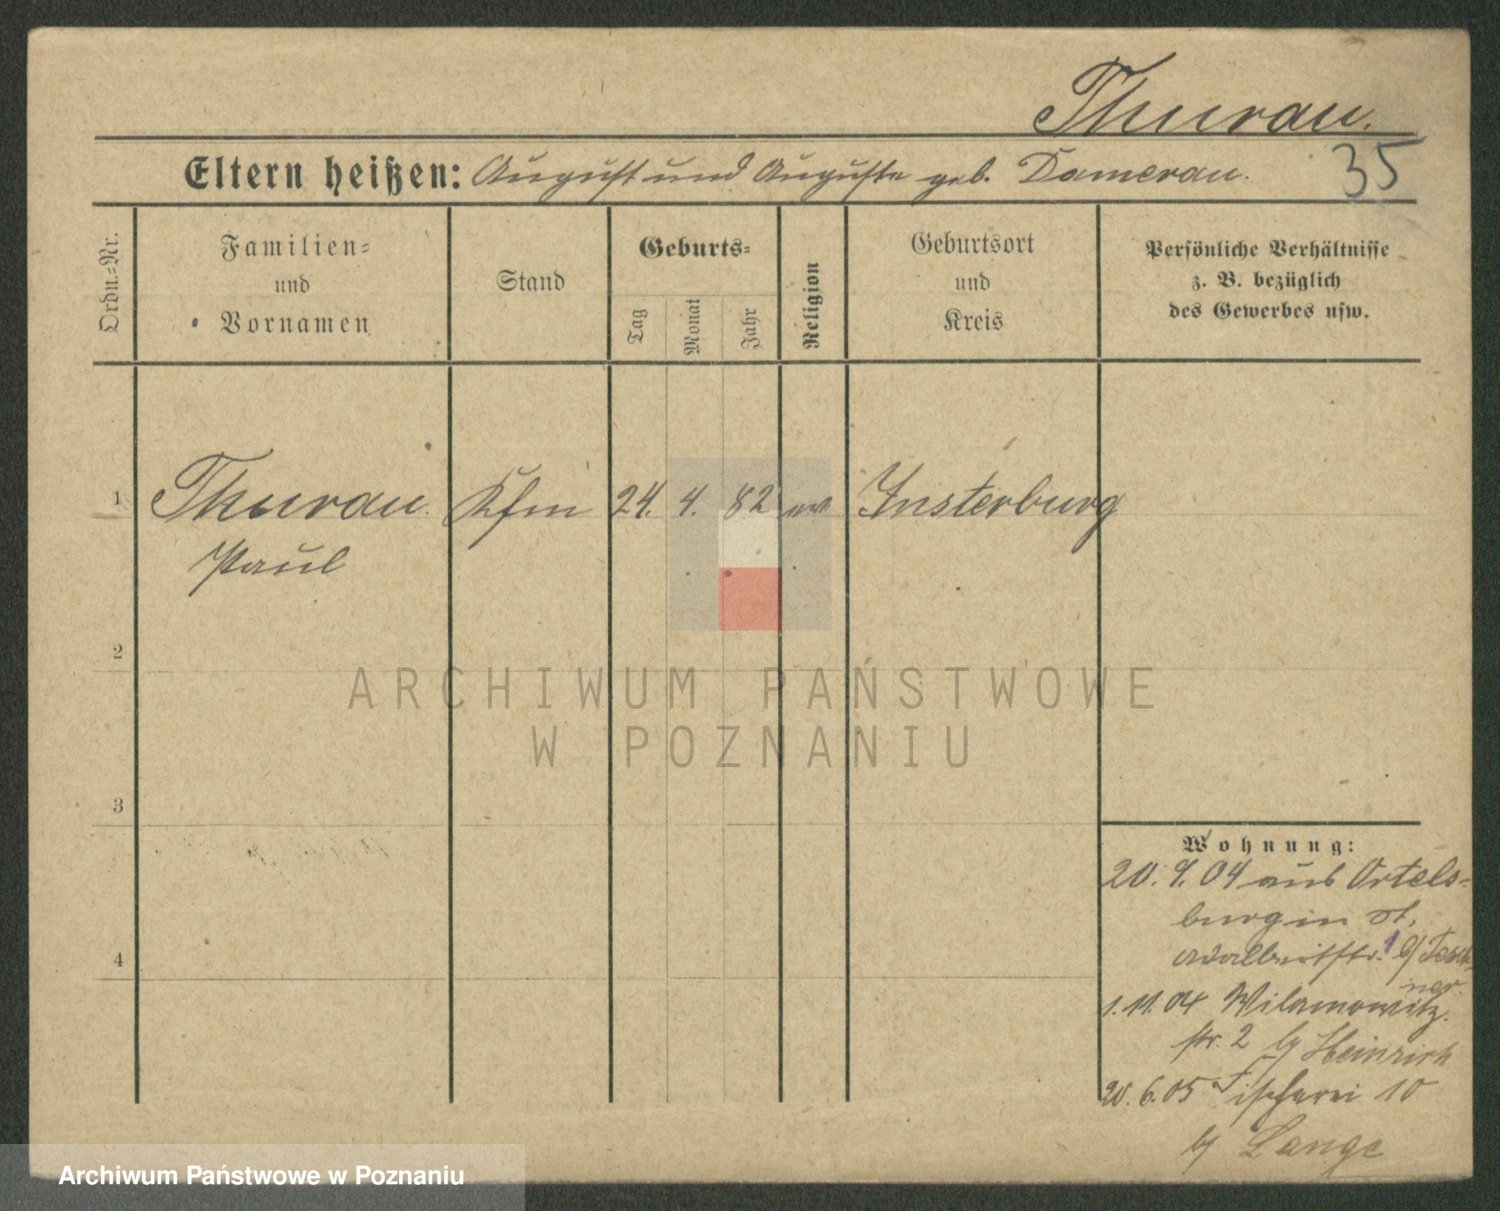 Thurau.
Eltern heißen: August und Auguste geb. Damerau.
35
Ordn.=Nr.
Familien=
und
Vornamen
Stand
Geburts=
Tag
Monat
Jahr
Religion
Geburtsort
und
Kreis
Persönliche Verhältnisse
z. B. bezüglich
des Gewerbes usw.
1 Thurau. Kfm 24. 4. 82 ev Insterburg
Paul
2
3
4
ARCHIWUM PAŃSTWOWE
W POZNANIU
Wohnung:
20. 9. 04 aus Ortels=
burg in St.
Adalbertstr. 1 b/ Tesch=
ner.
1. 11. 04 Wilamowitz.
str. 2 b/ Heinrich
20. 6. 05 Fischerei 10
b/ Lange
Archiwum Państwowe w Poznaniu